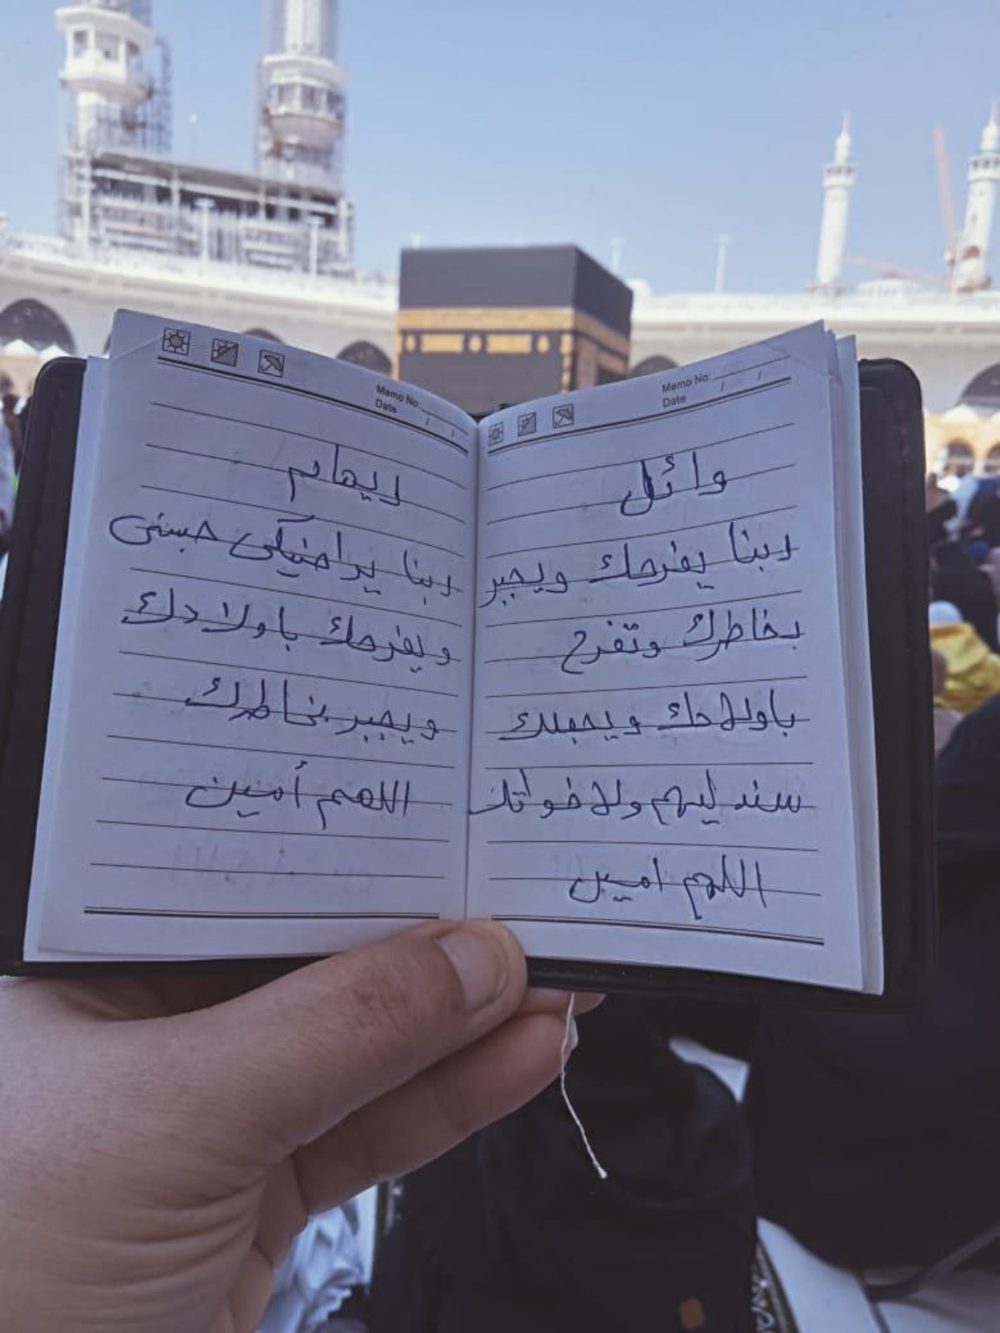 Memo No:
Date / /
وائل
ربنا يفرحك ويجبر
بخاطرك وتفرح
باولادك ويجعلك
سند ليهم ولاخواتك
اللهم امين
Memo No:
Date / /
ريهام
ربنا يراضيكى
ويفرحك باولادك
ويجبر بخاطرك
اللهم أمين